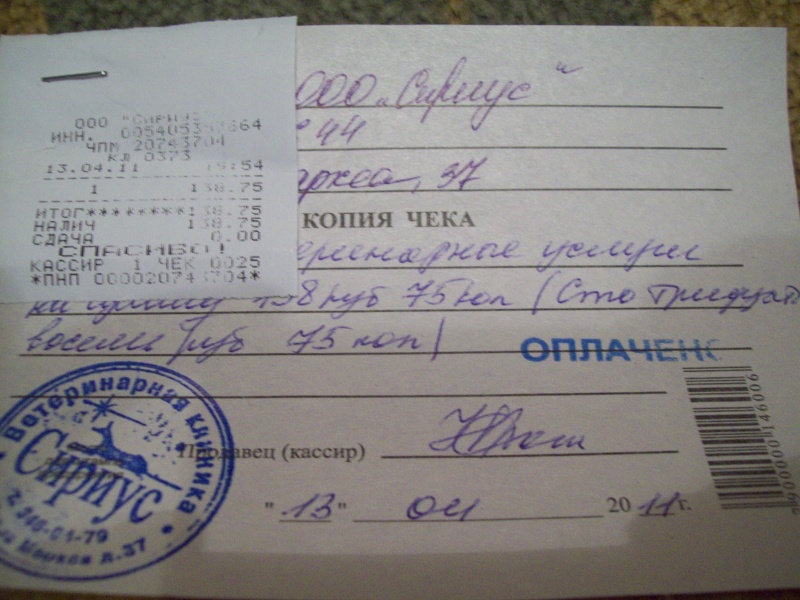 ООО "СИРИУС
ИНН. 005405357664
ЧПМ 20743704
КЛ 0373
13.04.11 15:54
1 138.75
ИТОГ********138.75
НАЛИЧ 138.75
СДАЧА 0.00
СПАСИБО!
КАССИР 1 ЧЕК 0025
*ПНП 000020743704*
ООО „Сириус“
44
аркса, 37
КОПИЯ ЧЕКА
еринарные услуги
на сумму 138 руб 75 коп (Сто тридцать
восемь руб 75 коп)
ОПЛАЧЕНО
Продавец (кассир)
"13" 04 2011г.
2900000146006
Ветеринарная клиника
Сириус
т. 346-01-79
д.37